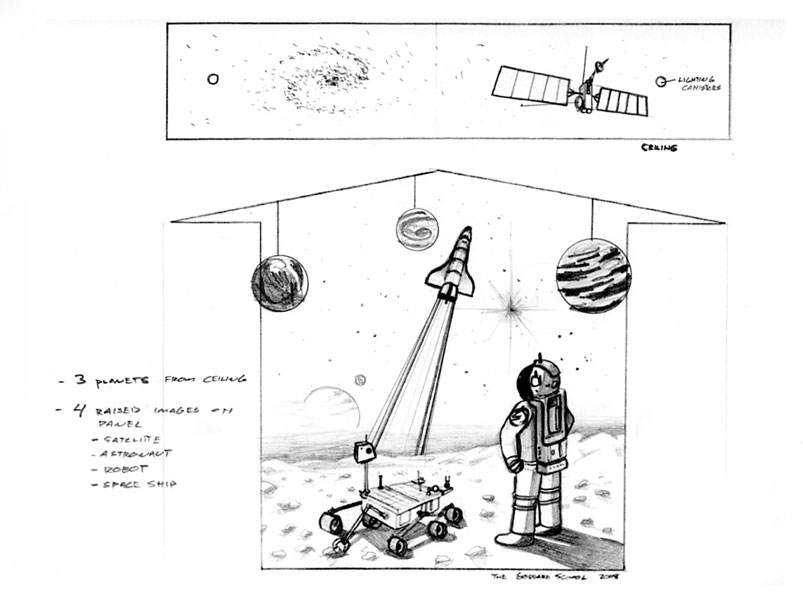 LIGHTING
CANISTERS
CEILING
- 3 PLANETS FROM CEILING
- 4 RAISED IMAGES ON
PANEL
- SATELLITE
- ASTRONAUT
- ROBOT
- SPACE SHIP
THE GODDARD SCHOOL 2008